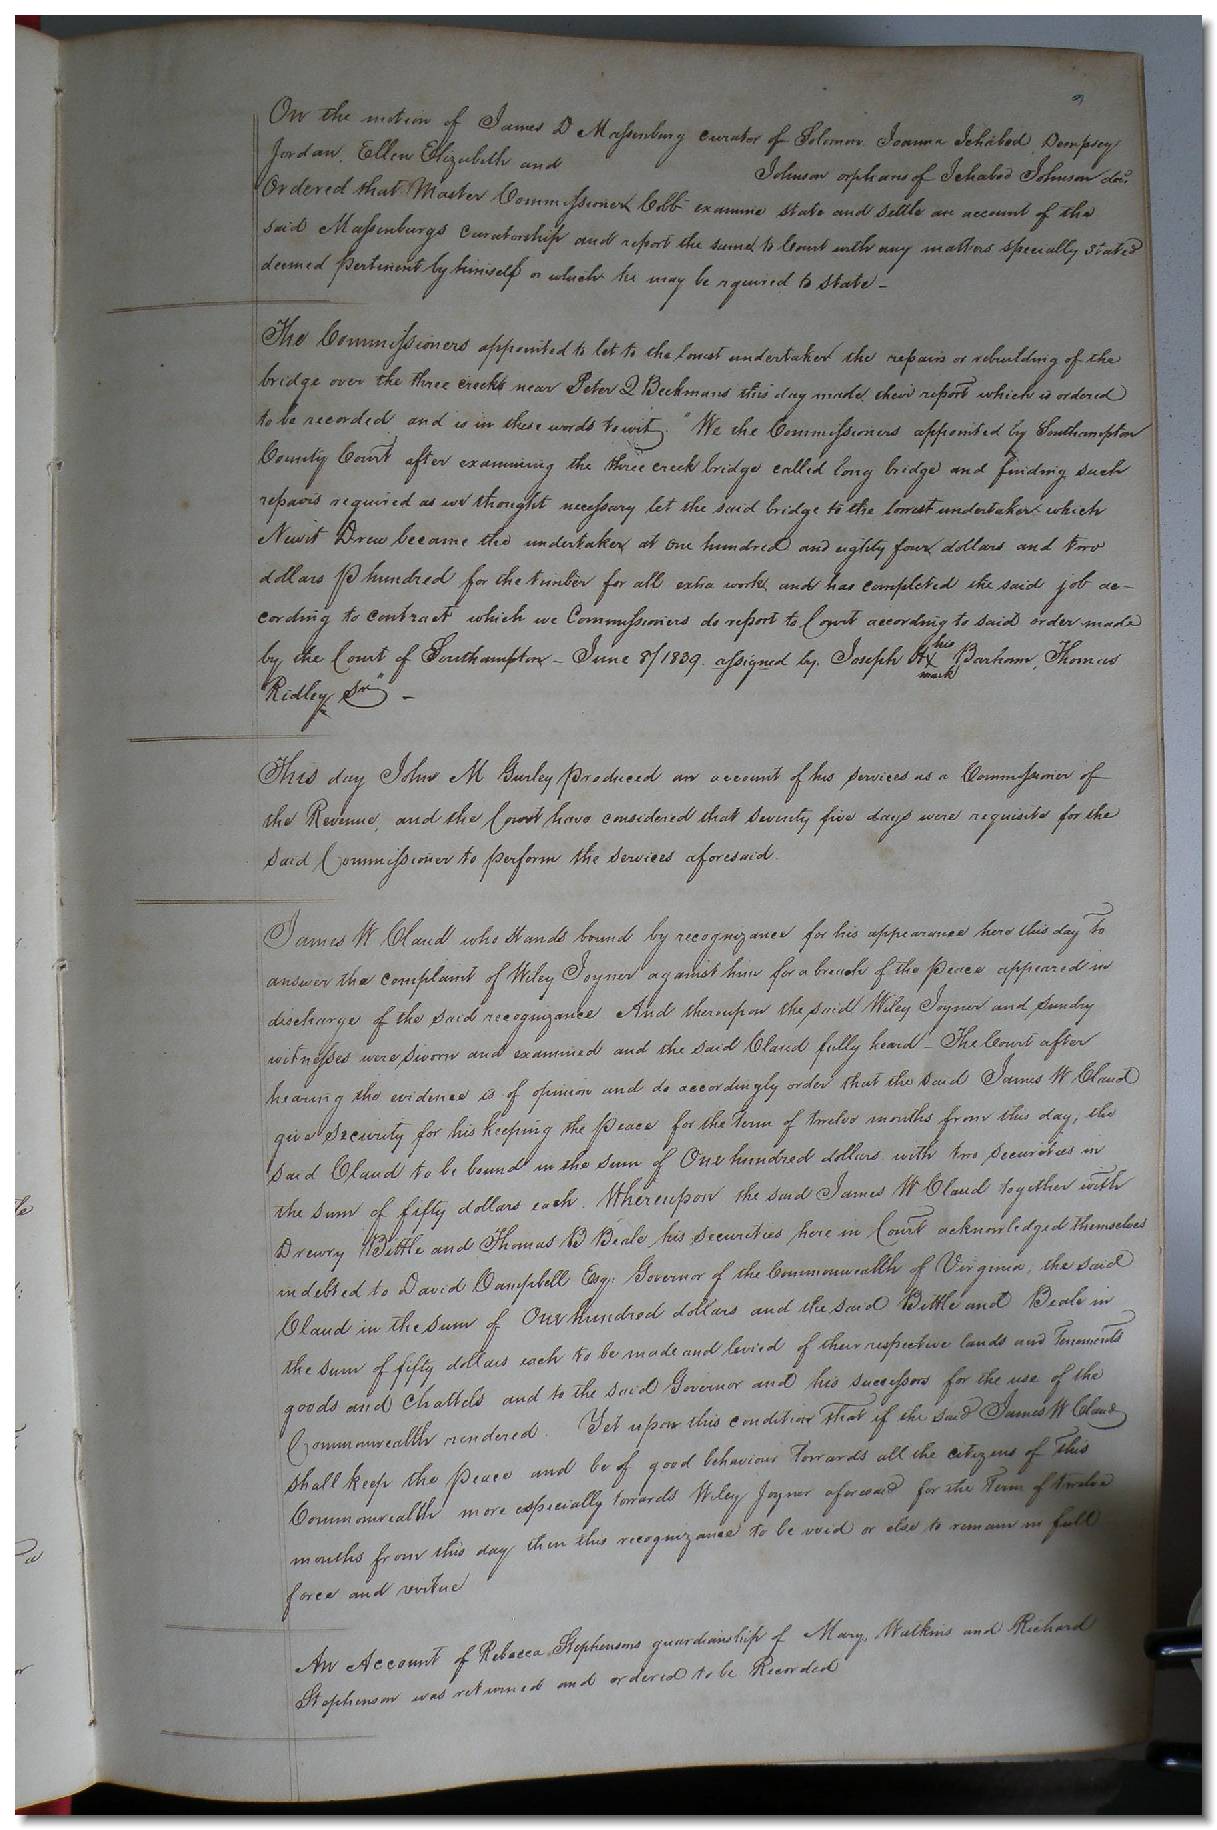 On the motion of James D Massenburg curator of Solomon Joanna Ichabod Dempsey
Jordan, Ellen Elizabeth and Johnson orphans of Ichabod Johnson decd.
Ordered that Master Commissioner Cobb examine state and settle an account of the
said Massenburgs curatorship and report the same to Court with any matters specially stated
deemed pertinent by himself or which he may be required to state -
The Commissioners appointed to let to the lowest undertaker the repairs or rebuilding of the
bridge over the three creeks near Peter Q Beckmans this day made their report which is ordered
to be recorded and is in these words to wit, "We the Commissioners appointed by Southampton
County Court after examining the three creek bridge called long bridge and finding such
repairs required as we thought necessary let the said bridge to the lowest undertaker which
Newit Drew became the undertaker at one hundred and eighty four dollars and two
dollars p hundred for the timber for all extra work and has completed the said job ac-
cording to contract which we Commissioners do report to Court according to said order made
by the Court of Southampton - June 8/1839. assigned by Joseph his X mark Barham, Thomas
Ridley Sr" -
This day John M Gurley produced an account of his services as a Commissioner of
the Revenue, and the Court have considered that seventy five days were requisite for the
said Commissioner to perform the services aforesaid.
James W Claud who stands bound by recognizance for his appearance here this day to
answer the complaint of Wiley Joyner against him for a breach of the peace appeared in
discharge of the said recognizance And thereupon the said Wiley Joyner and sundry
witnesses were sworn and examined and the said Claud fully heard - The Court after
hearing the evidence is of opinion and do accordingly order that the said James W Claud
give security for his keeping the peace for the term of twelve months from this day, the
said Claud to be bound in the sum of One hundred dollars with two securities in
the sum of fifty dollars each. Whereupon the said James W Claud together with
Drewry Bittle and Thomas B Beale his securities here in Court acknowledged themselves
indebted to David Campbell Esq: Governor of the Commonwealth of Virginia, the said
Claud in the sum of One hundred dollars and the said Bittle and Beale in
the sum of fifty dollars each to be made and levied of their respective lands and tenements
goods and chattels and to the said Governor and his successors for the use of the
Commonwealth rendered. Yet upon this condition that if the said James W Claud
shall keep the peace and be of good behaviour towards all the citizens of this
Commonwealth more especially towards Wiley Joyner aforesaid for the term of twelve
months from this day then this recognizance to be void or else to remain in full
force and virtue
An Account of Rebecca Stephensons guardianship of Mary, Watkins and Richard
Stephenson was returned and ordered to be Recorded